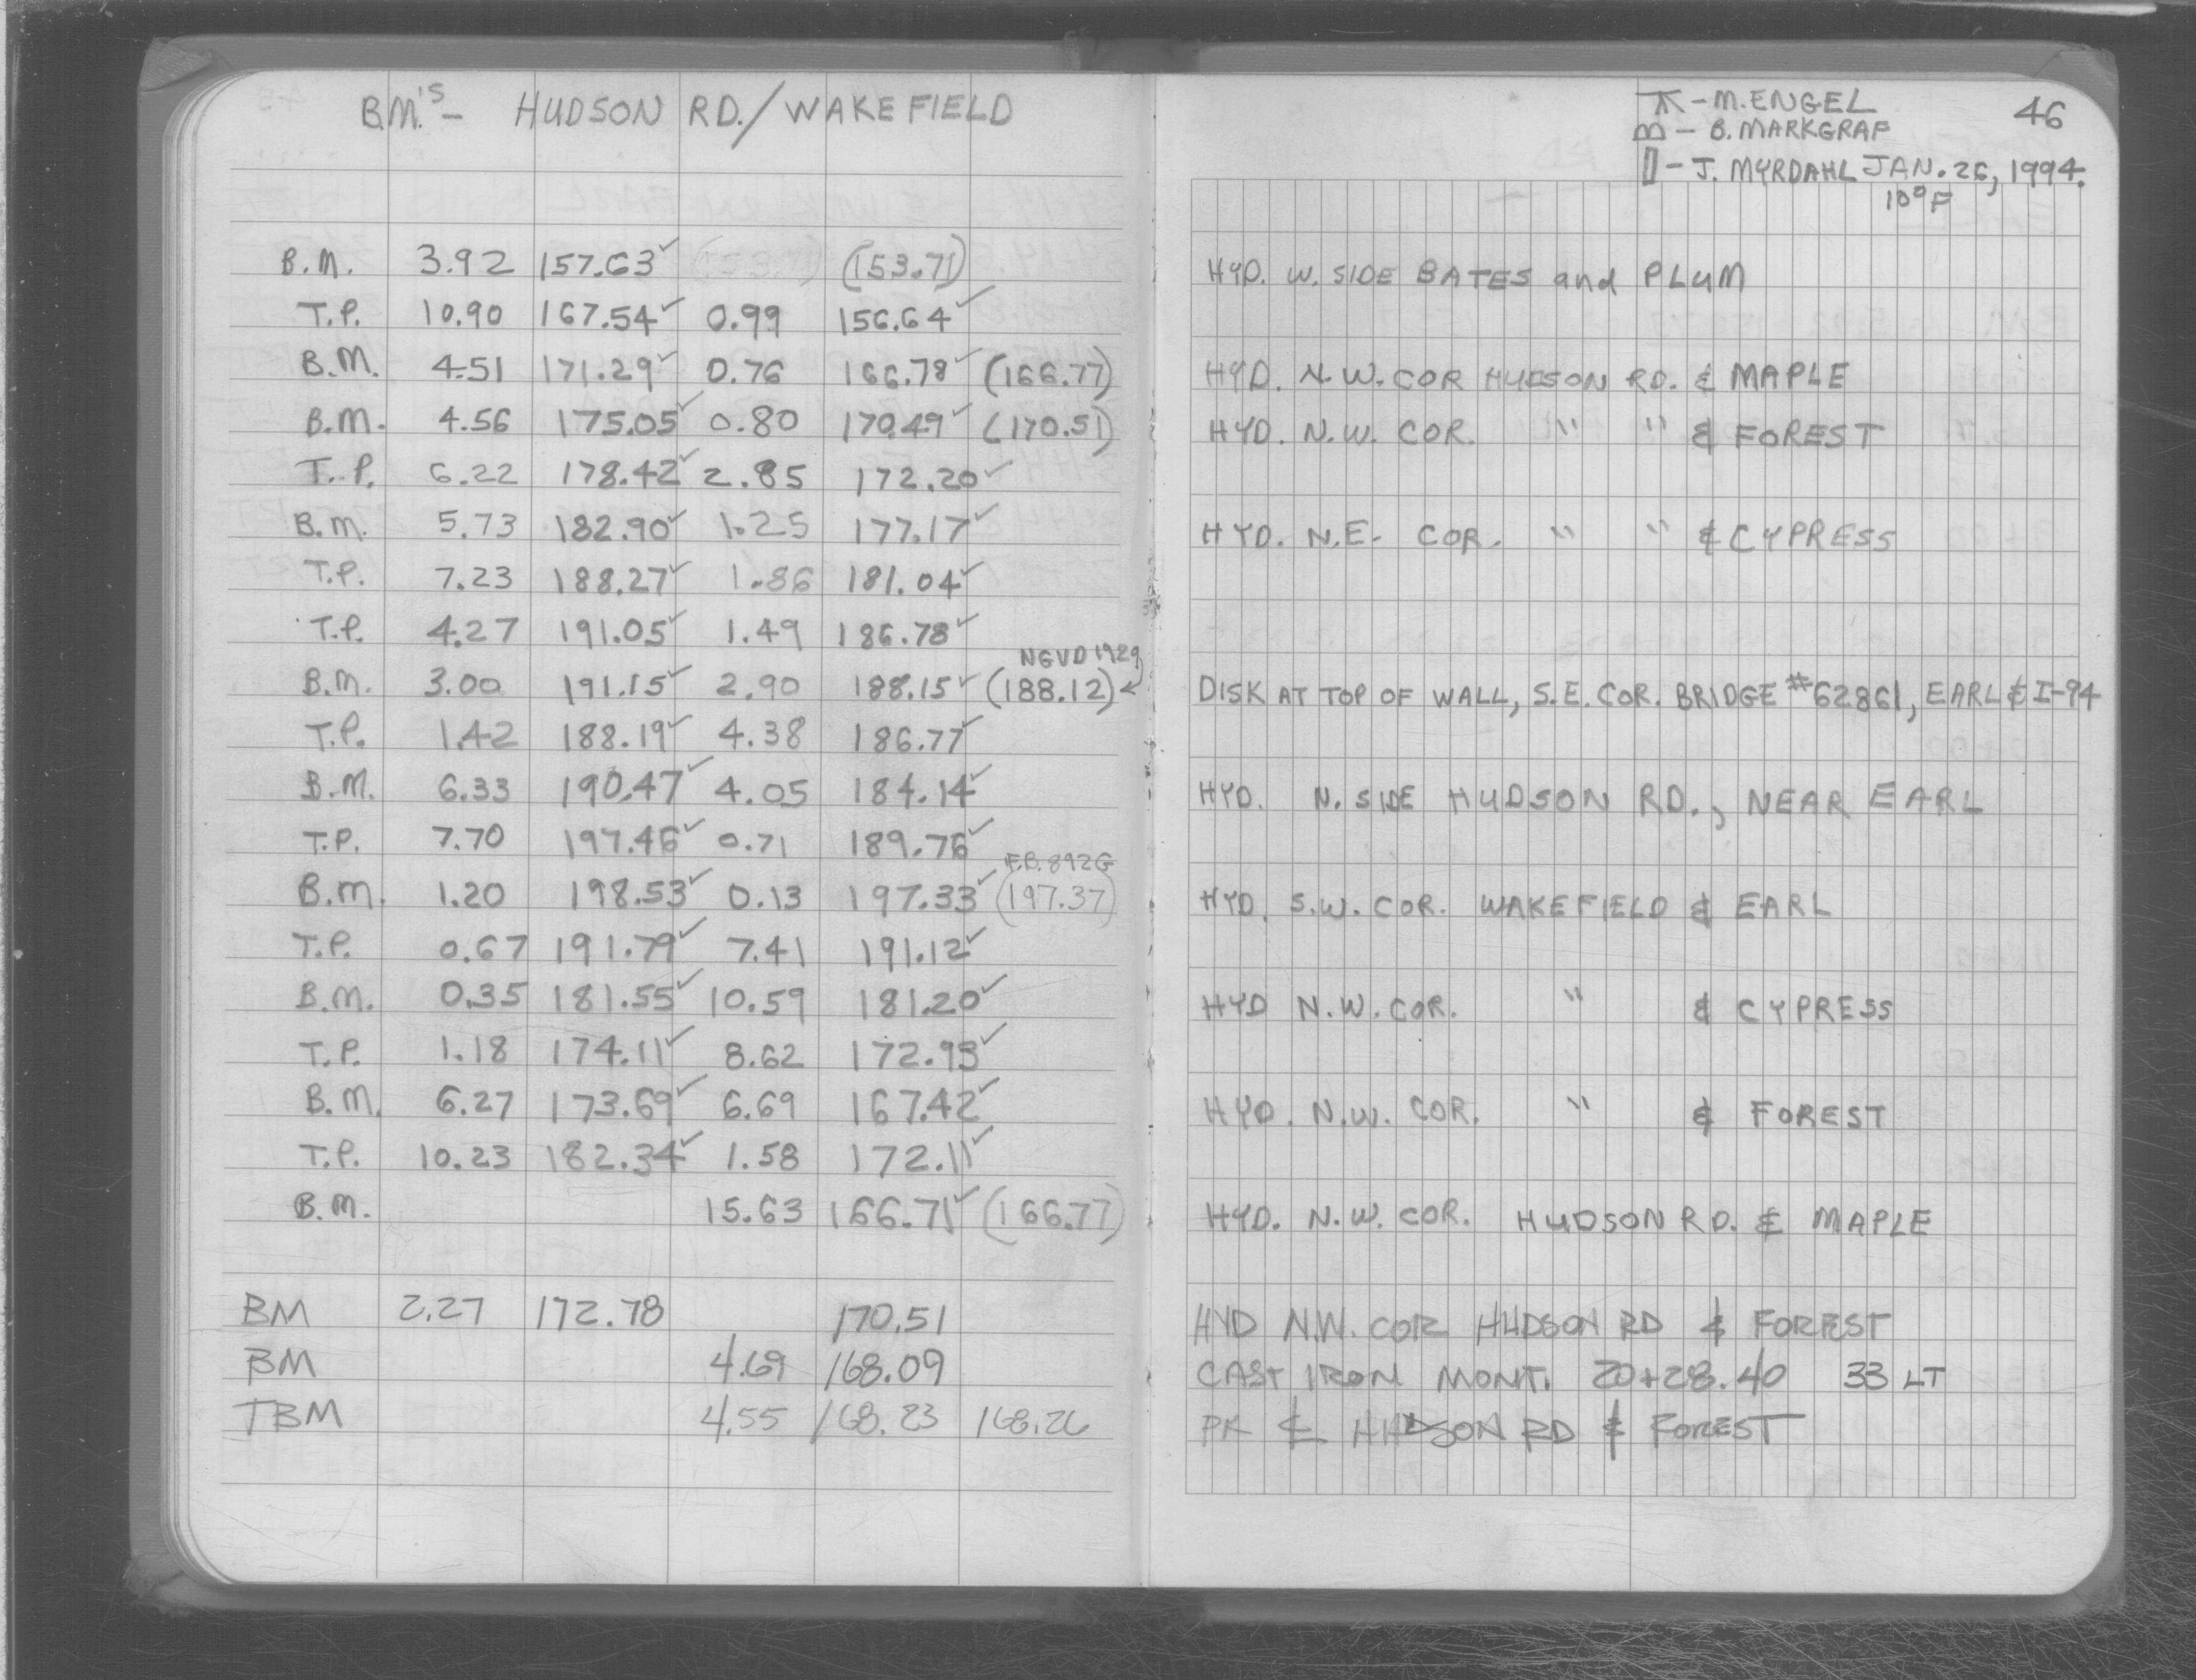 B.M.'S - HUDSON RD./WAKEFIELD
B.M. 3.92 157.63✓ (153.71)
T.P. 10.90 167.54✓ 0.99 156.64✓
B.M. 4.51 171.29✓ 0.76 166.78✓ (166.77)
B.M. 4.56 175.05✓ 0.80 170.49✓ (170.51)
T.P. 6.22 178.42✓ 2.85 172.20✓
B.M. 5.73 182.90✓ 1.25 177.17✓
T.P. 7.23 188.27✓ 1.86 181.04✓
T.P. 4.27 191.05✓ 1.49 186.78✓
NGVD 1929
B.M. 3.00 191.15✓ 2.90 188.15✓ (188.12)
T.P. 1.42 188.19✓ 4.38 186.77✓
B.M. 6.33 190.47✓ 4.05 184.14✓
T.P. 7.70 197.46✓ 0.71 189.76✓
F.B. 892G
B.M. 1.20 198.53✓ 0.13 197.33✓ (197.37)
T.P. 0.67 191.79✓ 7.41 191.12✓
B.M. 0.35 181.55✓ 10.59 181.20✓
T.P. 1.18 174.11✓ 8.62 172.93✓
B.M. 6.27 173.69✓ 6.69 167.42✓
T.P. 10.23 182.34✓ 1.58 172.11✓
B.M. 15.63 166.71✓ (166.77)
BM 2.27 172.78 170.51
BM 4.69 168.09
TBM 4.55 168.23 168.26
- M. ENGEL
- B. MARKGRAF
- J. MYRDAHL JAN. 26, 1994.
46
10°F
HYD. W. SIDE BATES and PLUM
HYD. N.W. COR HUDSON RD. & MAPLE
HYD. N.W. COR. " " & FOREST
HYD. N.E. COR. " " & CYPRESS
DISK AT TOP OF WALL, S.E. COR. BRIDGE #62861, EARL & I-94
HYD. N. SIDE HUDSON RD., NEAR EARL
HYD. S.W. COR. WAKEFIELD & EARL
HYD N.W. COR. " & CYPRESS
HYD. N.W. COR. " & FOREST
HYD. N.W. COR. HUDSON RD. & MAPLE
HYD N.W. COR HUDSON RD & FOREST
CAST IRON MONT. 20+28.40 33 LT
PK ℄ HUDSON RD & FOREST